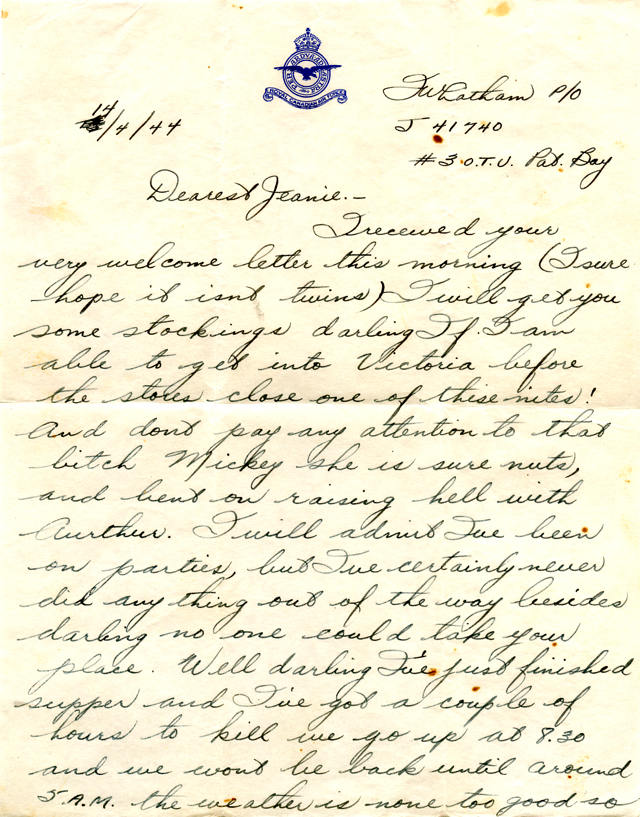 ROYAL CANADIAN AIR FORCE
14/4/44
JWLatham P/O
J 41740
#3 O.T.U. Pat. Bay
Dearest Jeanie.-
I received your
very welcome letter this morning (I sure
hope it isnt twins) I will get you
some stockings darling If I am
able to get into Victoria before
the stores close one of these nites!
And dont pay any attention to that
bitch Mickey she is sure nuts,
and bent on raising hell with
Aurthur. I will admit I've been
on parties, but I've certainly never
did any thing out of the way besides
darling no one could take your
place. Well darling I've just finished
supper and I've got a couple of
hours to kill we go up at 8.30
and we wont be back until around
5 A.M. the weather is none too good so